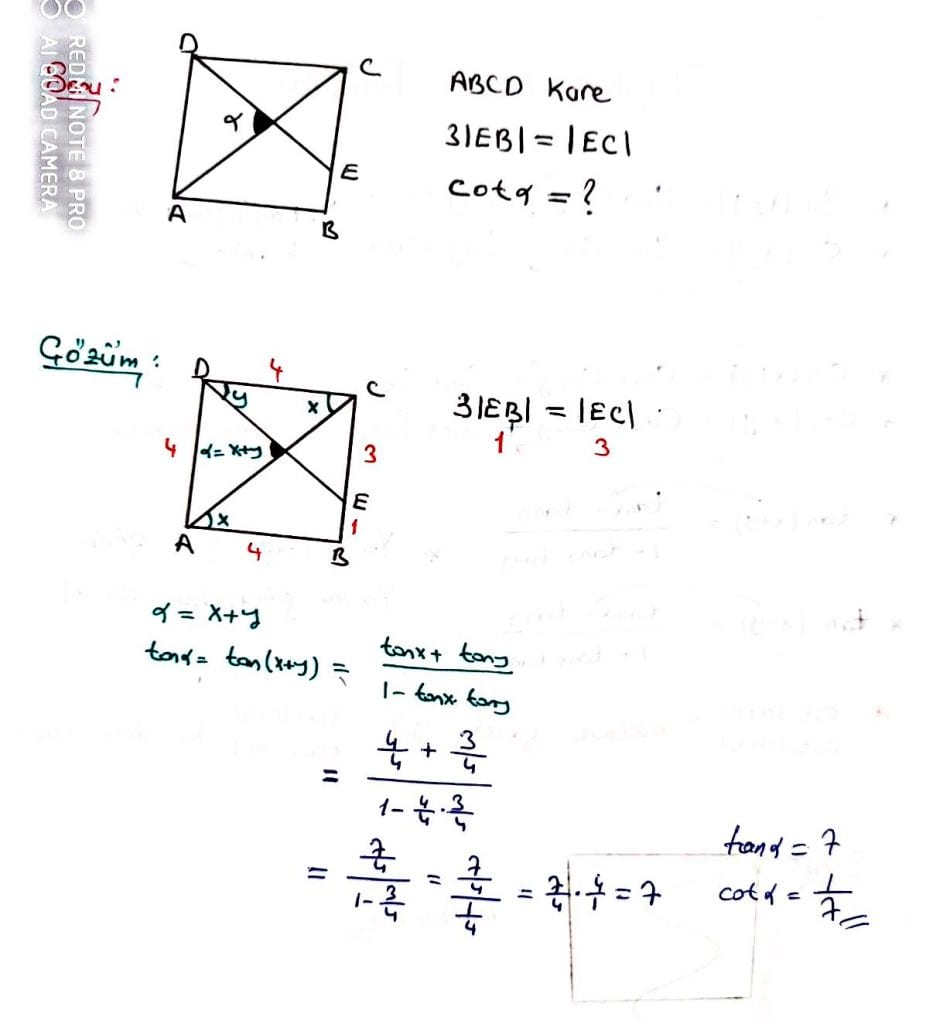 REDMI NOTE 8 PRO
AI QUAD CAMERA
Soru:
D
C
α
E
A
B
ABCD Kare
3|EB| = |EC|
cotα = ?
Çözüm:
D
4
C
y
x
4
α = x+y
3
E
x
1
A
4
B
3|EB| = |EC|
1
3
α = x+y
tanα = tan(x+y) = (tanx + tany) / (1 - tanx tany)
= (4/4 + 3/4) / (1 - 4/4 . 3/4)
= (7/4) / (1 - 3/4) = (7/4) / (1/4) = 7/4 . 4/1 = 7
tanα = 7
cotα = 1/7